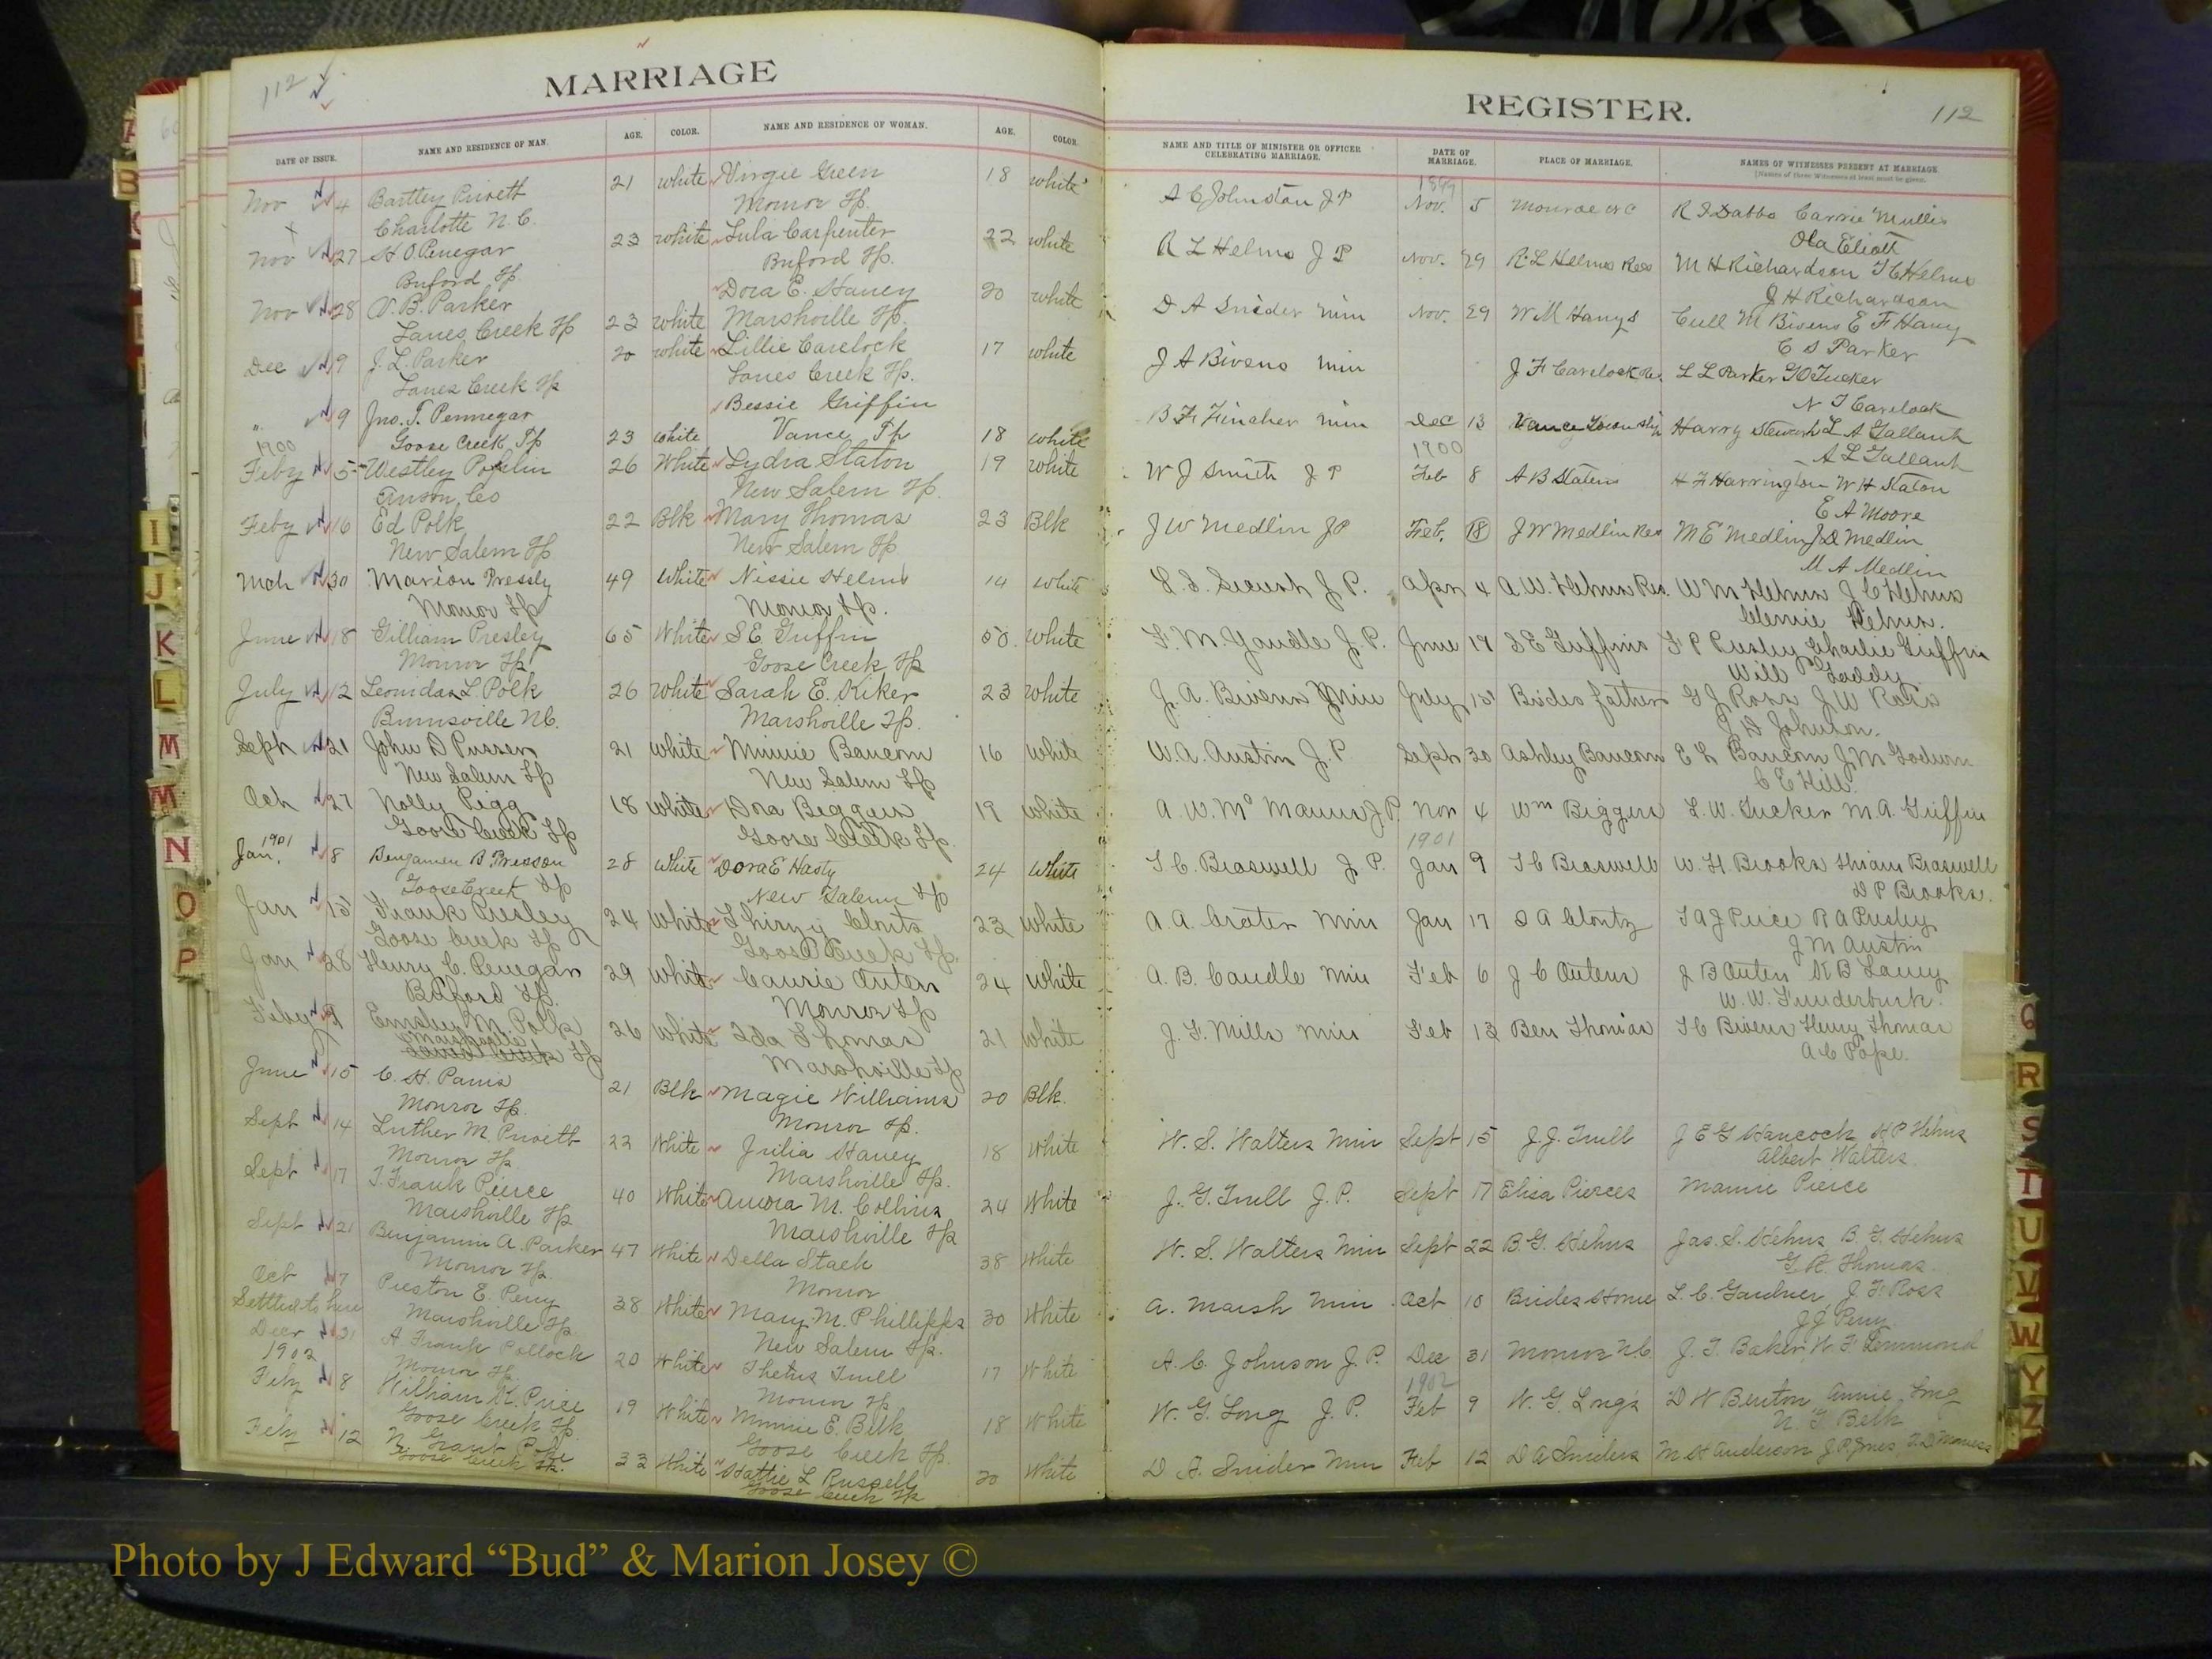 112
MARRIAGE
DATE OF ISSUE. NAME AND RESIDENCE OF MAN. AGE. COLOR. NAME AND RESIDENCE OF WOMAN. AGE. COLOR.
Nov 4 Bartley Privett 21 white Virgie Green 18 white
Charlotte N.C. Monroe Tp.
Nov 27 H. O. Penegar 23 white Lula Carpenter 22 white
Buford Tp. Buford Tp.
Nov 28 V. B. Parker 23 white Dora E. Haney 20 white
Lanes Creek Tp Marshville Tp.
Dec 9 J. L. Parker 20 white Lillie Carelock 17 white
Lanes Creek Tp Lanes Creek Tp.
" 9 Jno. T. Pennegar 23 white Bessie Griffin 18 white
Goose Creek Tp Vance Tp
1900
Feby 5 Westley Poplin 26 White Lydia Staton 19 white
Anson Co New Salem Tp.
Feby 16 Ed Polk 22 Blk Mary Thomas 23 Blk
New Salem Tp New Salem Tp
Mch 30 Marion Pressly 49 White Nissie Helms 14 white
Monroe Tp Monroe Tp.
June 18 Gilliam Presley 65 White S E Griffin 50. white
Monroe Tp Goose Creek Tp
July 12 Leonidas L Polk 26 white Sarah E. Kiker 23 white
Burnsville N.C. Marshville Tp.
Sept 21 John D Pusser 21 white Minnie Baucom 16 white
New Salem Tp New Salem Tp
Oct 27 Nolly Pigg 18 white Dora Biggers 19 white
Goose Creek Tp Goose Creek Tp.
1901
Jan. 8 Benjamin B Presson 28 White Dora E Hasty 24 White
Goose Creek Tp New Salem Tp
Jan 15 Frank Presley 24 White Clonts 23 White
Goose Creek Tp Goose Creek Tp.
Jan 28 Henry C. Penegar 29 White Carrie Outen 24 White
Buford Tp. Monroe Tp
Feby 9 Emsley M. Polk 26 White Ida Thomas 21 White
Marshville Tp Marshville Tp
June 15 C. H. 21 Blk Magie Williams 20 Blk.
Monroe Tp. Monroe Tp.
Sept 14 Luther M. Privett 22 White Julia Haney 18 White
Monroe Tp. Marshville Tp.
Sept 17 T. Frank Pierce 40 White Aurora M. Collins 24 White
Marshville Tp. Marshville Tp
Sept 21 Benjamin A. Parker 47 White Della Stack 38 White
Monroe Tp. Monroe
Oct 7 Preston E. Perry 38 White Mary M. Phillipps 30 White
Settled to here Marshville Tp. New Salem Tp.
Decr 31 A Frank Pollock 20 White Thetus Trull 17 White
1902 Monroe Tp. Monroe Tp
Feby 8 William K. Price 19 White Minnie E. Belk 18 White
Goose Creek Tp. Goose Creek Tp.
Feby 12 N. Grant 33 White Hattie L Russell 20 White
Goose Creek Tp. Goose Creek Tp
REGISTER.
112
NAME AND TITLE OF MINISTER OR OFFICER CELEBRATING MARRIAGE. DATE OF MARRIAGE. PLACE OF MARRIAGE. NAMES OF WITNESSES PRESENT AT MARRIAGE.
[Names of three Witnesses at least must be given.
1899
A C Johnston J P Nov. 5 Monroe N C R I Dabbs Carrie Mullis
Ola Eliott
R L Helms J P Nov. 29 R. L Helms Res M H Richardson T C Helms
J H Richardson
D A Snider Min Nov. 29 W M Hanys Cull M Bivens E F Hany
C S Parker
J A Bivens Min J F Carelock Res. L L Parker G O Tucker
N J Carelock
B F Fincher Min Dec 13 Vance Township Harry Stewart L A Gallant
A L Gallant
1900
W J Smith J P Feb 8 A B Statens H F Harrington W H Staton
E A Moore
J W Medlin JP Feb. 18 J W Medlin Res M E Medlin J D Medlin
M A Medlin
J. P. Apr 4 A. W. Helms Res. W M Helms J C Helms
Helms.
F. M. Yandle J. P. June 19 S E Griffins F P Presley Charlie Griffin
Will Gaddy
J. A. Bivens Min July 15 Brides father G J Ross J W Ross
J D Johnson.
W. A. Austin J. P Sept 30 Ashley Baucom E L Baucom J M Godwin
C E Hill
A. W. McManus J P. Nov 4 Wm Biggers L. W. Tucker M A. Griffin
1901
T C. Braswell J P. Jan 9 T C Braswell W. H. Brooks Hiram Braswell
D P Brooks.
A. A. Crater Min Jan 17 S A Clontz T A J Price R A Presley
J M Austin
A. B. Caudle Min Feb 6 J C Outens J B Outen K B Laney
W. W. Funderburk.
J. F. Mills Min Feb 13 Ben Thomas T C Bivens Henry Thomas
A C Pope.
W. S. Walters Min Sept 15 J. J. Trull J E G Hancock H P Helms
Albert Walters.
J. G. Trull J. P. Sept 17 Elisa Pierces Mamie Pierce
W. S. Walters Min Sept 22 B. G. Helms Jas. S. Helms B. G. Helms
G. R. Thomas.
A. Marsh Min Oct 10 Brides Home L. C. Gardner J. F. Ross
J J Perry
A. C. Johnson J. P. Dec 31 Monroe N.C. J. T. Baker W. F. Lemmond
1902
W. G. Long J. P. Feb 9 W. G. Longs D W Benton, Annie Long
N. G Belk
D. A. Snider Min Feb 12 D A Sniders M. H Anderson J. P. Jones, T. D. Maness
B I J K L M M N O P
Q R S T U V W Y Z
Photo by J Edward “Bud” & Marion Josey ©